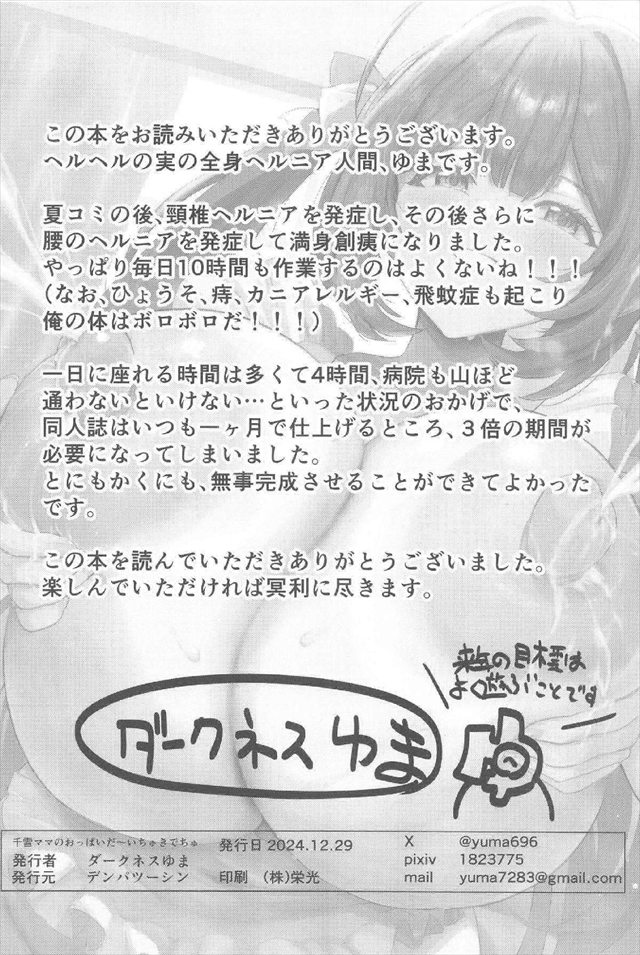 この本をお読みいただきありがとうございます。
ヘルヘルの実の全身ヘルニア人間、ゆまです。
夏コミの後、頸椎ヘルニアを発症し、その後さらに
腰のヘルニアを発症して満身創痍になりました。
やっぱり毎日10時間も作業するのはよくないね！！！
(なお、ひょうそ、痔、カニアレルギー、飛蚊症も起こり
俺の体はボロボロだ！！！)
一日に座れる時間は多くて4時間、病院も山ほど
通わないといけない…といった状況のおかげで、
同人誌はいつも一ヶ月で仕上げるところ、３倍の期間が
必要になってしまいました。
とにもかくにも、無事完成させることができてよかった
です。
この本を読んでいただきありがとうございました。
楽しんでいただければ冥利に尽きます。
来年の目標は
よく遊ぶことです
ダークネスゆま
ゆ
千雪ママのおっぱいだ〜いちゅきでちゅ
発行者 ダークネスゆま
発行元 デンパツーシン
発行日 2024.12.29
印刷 (株)栄光
X @yuma696
pixiv 1823775
mail yuma7283@gmail.com